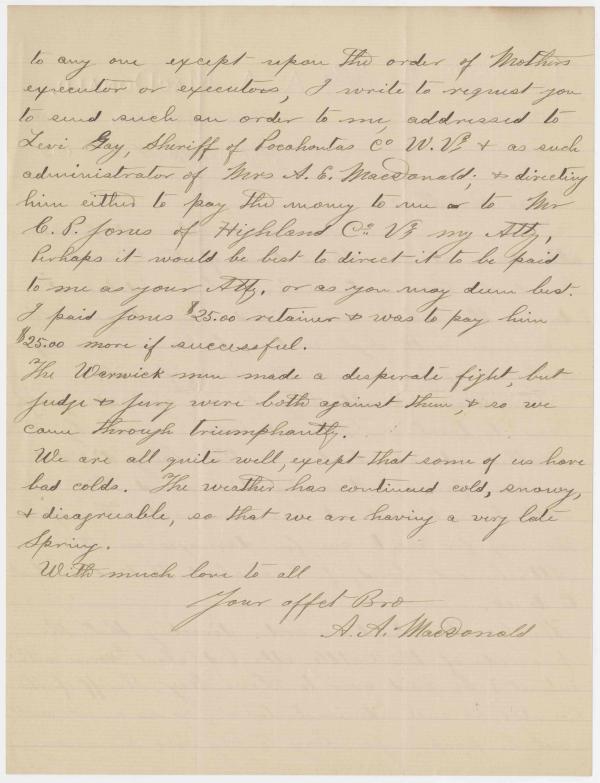 to any one except upon the order of Mothers
executor or executors, I write to request you
to send such an order to me, addressed to
Levi Gay, Sheriff of Pocahontas Co W. Va & as such
administrator of Mrs A. E. MacDonald; & directing
him either to pay the money to me or to Mr
C. P. Jones of Highland Co. Va my Atty,
perhaps it would be best to direct it to be paid
to me as your Atty, or as you may deem best.
I paid Jones $25.00 retainer & was to pay him
$25.00 more if successful.
The Warwick men made a desperate fight, but
judge & jury were both against them, & so we
came through triumphantly.
We are all quite well, except that some of us have
bad colds. The weather has continued cold, snowy,
& disagreeable, so that we are having a very late
Spring.
With much love to all
Your affct Bro
A. A. MacDonald